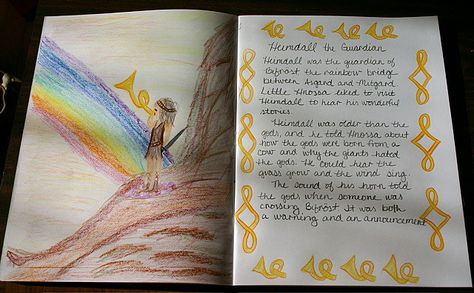 Heimdall the Guardian
Heimdall was the guardian of
Bifröst the rainbow bridge
between Asgard and Mitgard.
Little Hnossa liked to visit
Heimdall to hear his wonderful
stories.
Heimdall was older than the
gods, and he told Hnossa about
how the gods were born from a
cow and why the giants hated
the gods. He could hear the
grass grow and the wind sing.
The sound of his horn told
the gods when someone was
crossing Bifröst. It was both
a warning and an announcement